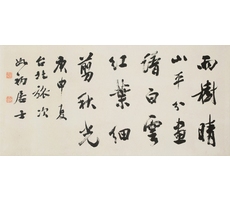 雨樹晴
山平分畫
譜白雲
紅葉細
剪秋光
庚申夏
台北旅次
居士